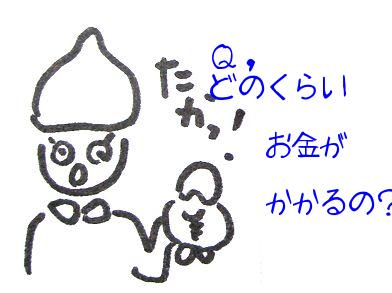 たっ
カっ!
Q,
どのくらい
お金が
かかるの?
¥